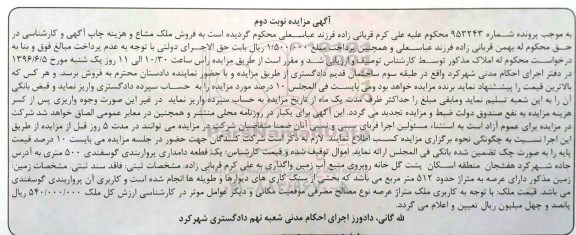 آگهی مزایده نوبت دوم
به موجب پرونده شماره ۹۵۳۲۴۳ محکوم علیه علی کرم قربانی زاده فرزند عباسعلی محکوم گردیده است به فروش ملک مشاع و هزینه چاپ آگهی و کارشناسی در
حق محکوم له بهمن قربانی زاده فرزند عباسعلی و همچنین پرداخت مبلغ ۱/۵۰۰/۰۰۰ ریال بابت حق الاجرای دولتی با توجه به عدم پرداخت مبالغ فوق و بنا به
درخواست محکوم له املاک مذکور توسط کارشناس توصیف و ارزیابی شد و مقرر است از طریق مزایده راس ساعت ۱۰/۳۰ الی ۱۱ روز یک شنبه مورخ ۱۳۹۶/۶/۵
در دفتر اجرای احکام مدنی شهرکرد واقع در طبقه سوم ساختمان قدیم دادگستری از طریق مزایده و با حضور نماینده دادستان محترم به فروش برسد. و هر کس که
بالاترین قیمت را پیشنهاد نماید برنده مزایده خواهد بود و می بایست فی المجلس ۱۰ درصد مورد مزایده را به حساب سپرده دادگستری واریز نماید و فیش بانکی
آن را به این شعبه تسلیم نماید ومابقی مبلغ را حداکثر ظرف مدت یک ماه از تاریخ مزایده به حساب سپرده واریز نماید در غیر این صورت وجوه واریزی پس از کسر
هزینه مزایده به نفع صندوق دولت ضبط و مزایده تجدید می گردد. این آگهی برای یکبار در روزنامه محلی منتشر و همچنین در معابر عمومی الصاق خواهد شد شرکت
در مزایده برای عموم آزاد است به استثناء مسئولین اجرا قوای ضمناً متقاضیان شرکت در مزایده می توانند در مدت ۵ روز قبل از مزایده از طریق
این اجرا نسبت به چگونگی نحوه برگزاری مزایده کسب اطلاع نمایند لازم به ذکر است شرکت کنندگان جهت حضور در جلسه مزایده می بایست ۱۰ درصد قیمت
پایه را به صورت چک تضمین شده بانکی فی المجلس ارائه نماید. اموال توقیف شده و قیمت پایه به شرح نظریه کارشناس: یک قطعه دامداری پرواربندی گوسفندی ۵۰۰ متری به آدرس
جاده شهرکرد هفشجان منطقه اسکان پشت گل خانه روبروی منبع آب زمین واگذاری به علی کرم قربانی زاده. مشخصات ثبتی: فاقد سند ثبتی. مشخصات زمین:
زمین مذکور دارای عرصه به متراژ حدود ۵۱۲ متر مربع می باشد که بخشی از سنگ کاری های دیوارها و طویله ها انجام شده است و کاربری آن پرواربندی گوسفندی
می باشد. قیمت ملک: با توجه به کاربری ملک متراژ عرصه نوع مصالح مصرفی موقعیت مکانی و دیگر عوامل موثر در کارشناسی ارزش کل ملک ۵۴۰/۰۰۰/۰۰۰ ریال
پانصد و چهل میلیون ریال تعیین و اعلام می گردد.
لله گانی، دادورز اجرای احکام مدنی شعبه نهم دادگستری شهرکرد